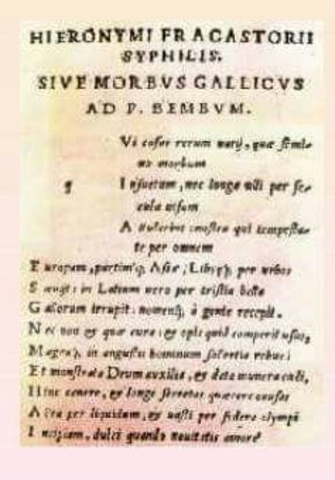 HIERONYMI FRACASTORII
SYPHILIS.
SIVE MORBVS GALLICVS
AD P. BEMBVM.
Vi casus rerum varij, quæ semi-
na morbum
I nsuetum, nec longa ulli per se-
cula uisum
A ttulerint: nostra qui tempesta-
te per omnem
E uropam, partimq; Asiæ, Libyæq; per urbes
S æuijt: in Latium uero per tristia bella
G allorum irrupit: nomenq; à gente recepit.
N ec non et quæ cura: et opis quid comperit usus,
Magnaq; in angustis hominum solertia rebus:
Et monstrata Deum auxilia, et data munera cæli,
Hinc canere, et longe secretas quærere causas
A era per liquidum, et uasti per sidera olympi
I ncipiam, dulci quando nouitatis amore